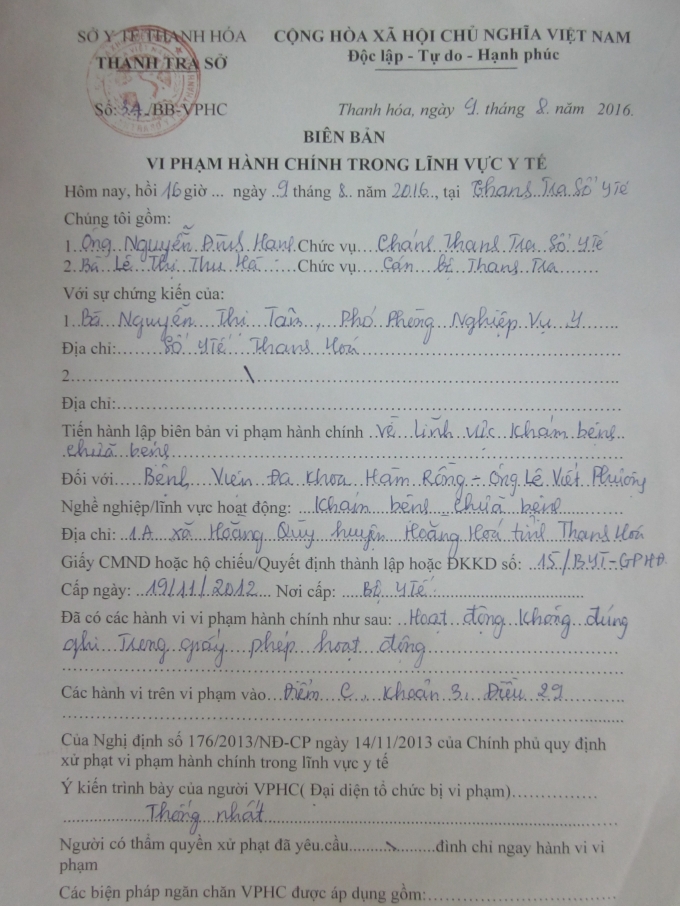 SỞ Y TẾ THANH HÓA
THANH TRA SỞ
CỘNG HÒA XÃ HỘI CHỦ NGHĨA VIỆT NAM
Độc lập - Tự do - Hạnh phúc
Số: 34./BB-VPHC
Thanh hóa, ngày 9. tháng 8. năm 2016.
BIÊN BẢN
VI PHẠM HÀNH CHÍNH TRONG LĨNH VỰC Y TẾ
Hôm nay, hồi 16 giờ ... ngày 9 tháng 8. năm 2016., tại Thanh Tra Sở Y Tế
Chúng tôi gồm:
1. Ông Nguyễn Đình Hanh. Chức vụ ... Chánh Thanh Tra Sở Y Tế
2. Bà Lê Thị Thu Hà ..... Chức vụ .... Cán bộ Thanh Tra
Với sự chứng kiến của:
1. Bà Nguyễn Thị Tâm, Phó Phòng Nghiệp Vụ Y......
Địa chỉ:...... Sở Y Tế Thanh Hoá
2...................\...................
Địa chỉ:...................
Tiến hành lập biên bản vi phạm hành chính về lĩnh vực khám bệnh
chữa bệnh
Đối với Bệnh Viện Đa Khoa Hàm Rồng - Ông Lê Viết Phường
Nghề nghiệp/lĩnh vực hoạt động: Khám bệnh chữa bệnh
Địa chỉ: 1A xã Hoằng Qùy huyện Hoằng Hoá tỉnh Thanh Hoá
Giấy CMND hoặc hộ chiếu/Quyết định thành lập hoặc ĐKKD số: 15/BYT-GPHĐ
Cấp ngày: 19/11/2012 Nơi cấp: Bộ Y Tế
Đã có các hành vi vi phạm hành chính như sau: Hoạt động không đúng
ghi Trong giấy phép hoạt động
Các hành vi trên vi phạm vào... Điểm C, Khoản 3, Điều 29
Của Nghị định số 176/2013/NĐ-CP ngày 14/11/2013 của Chính phủ quy định
xử phạt vi phạm hành chính trong lĩnh vực y tế
Ý kiến trình bày của người VPHC( Đại diện tổ chức bị vi phạm)...............
Thống nhất
Người có thẩm quyền xử phạt đã yêu cầu..........\.......đình chỉ ngay hành vi vi
phạm
Các biện pháp ngăn chăn VPHC được áp dụng gồm:...................